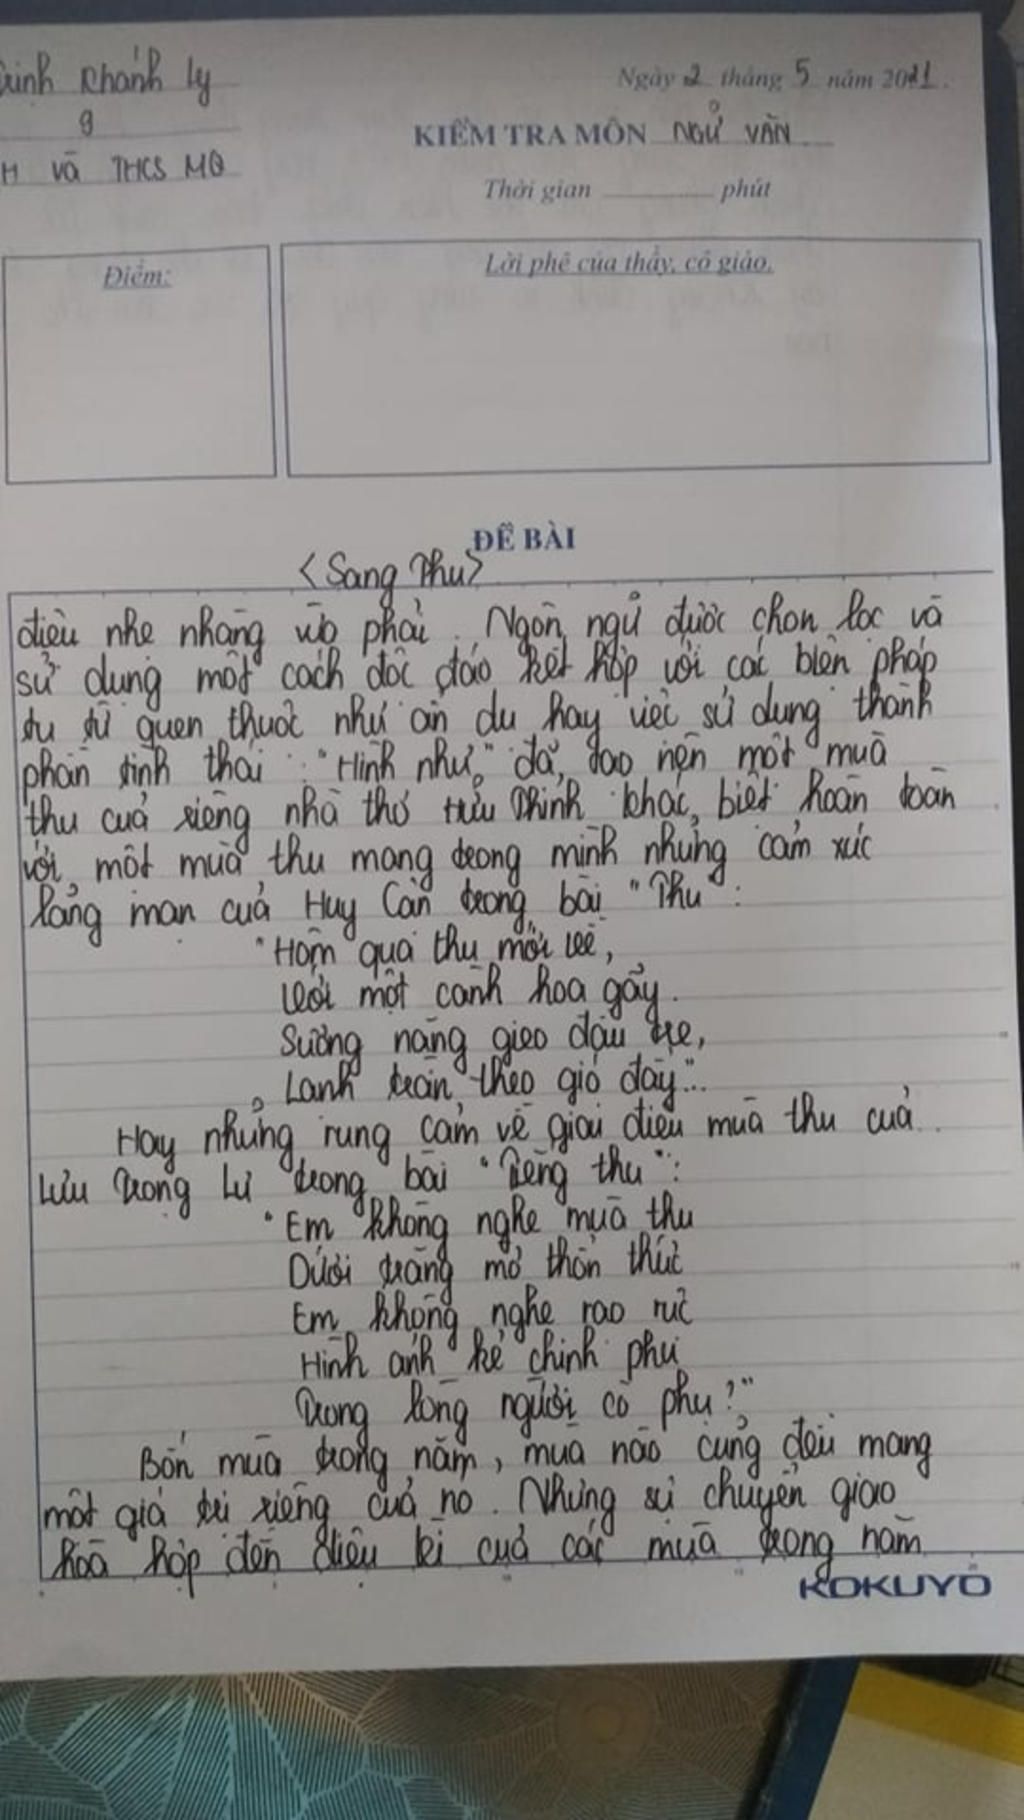 Trinh Khánh Ly
Ngày 2 tháng 5 năm 2021.
9
KIỂM TRA MÔN NGỮ VĂN
H và THCS MQ
Thời gian phút
Điểm:
Lời phê của thầy, cô giáo.
ĐỀ BÀI
<Sang Thu>
điệu nhẹ nhàng vừa phải. Ngôn ngữ được chọn lọc và
sử dụng một cách độc đáo kết hợp với các biện pháp
tu từ quen thuộc như ẩn dụ hay việc sử dụng thành
phần tình thái: "Hình như" đã tạo nên một mùa
thu của riêng nhà thơ Hữu Thỉnh khác biệt hoàn toàn
với một mùa thu mang trong mình những cảm xúc
lãng mạn của Huy Cận trong bài "Thu":
"Hôm qua thu mới về,
Với một cành hoa gầy.
Sương nặng gieo đậu tre,
Lanh tràn theo gió đầy"...
Hay những rung cảm về giai điệu mùa thu của
Lưu Trọng Lư trong bài "Tiếng thu":
"Em không nghe mùa thu
Dưới trăng mờ thổn thức
Em không nghe rạo rực
Hình ảnh kẻ chinh phu
Trong lòng người cô phụ?"
Bốn mùa trong năm, mùa nào cũng đều mang
một giá trị riêng của nó. Nhưng sự chuyển giao
hoà hợp đến diệu kì của các mùa trong năm
KOKUYO